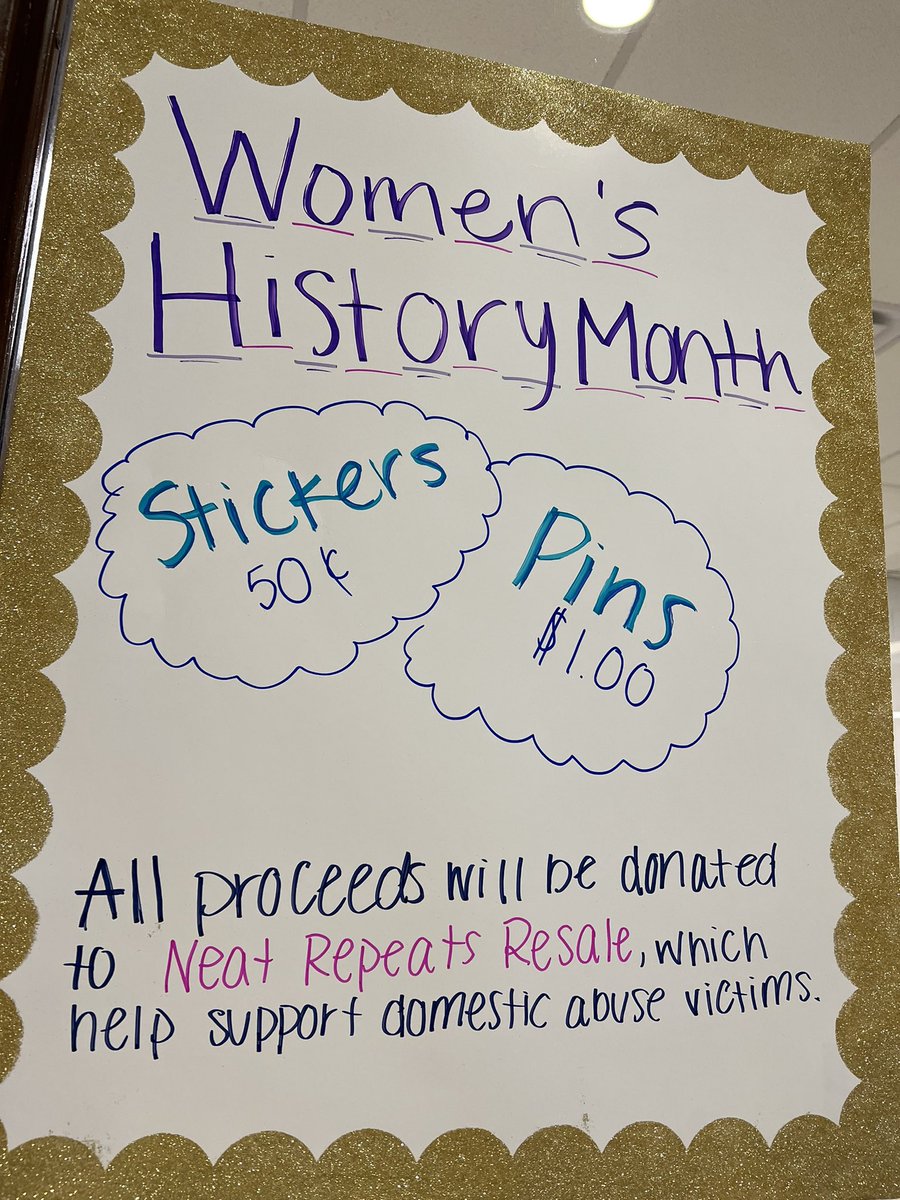 Women's
History Month
Stickers
50¢
Pins
$1.00
All proceeds will be donated
to Neat Repeats Resale, which
help support domestic abuse victims.